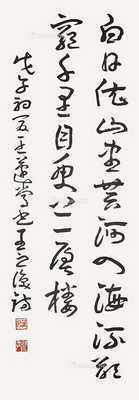 白日依山盡黃河入海流欲
窮千里目更上一層樓
戊午初夏 王之渙詩